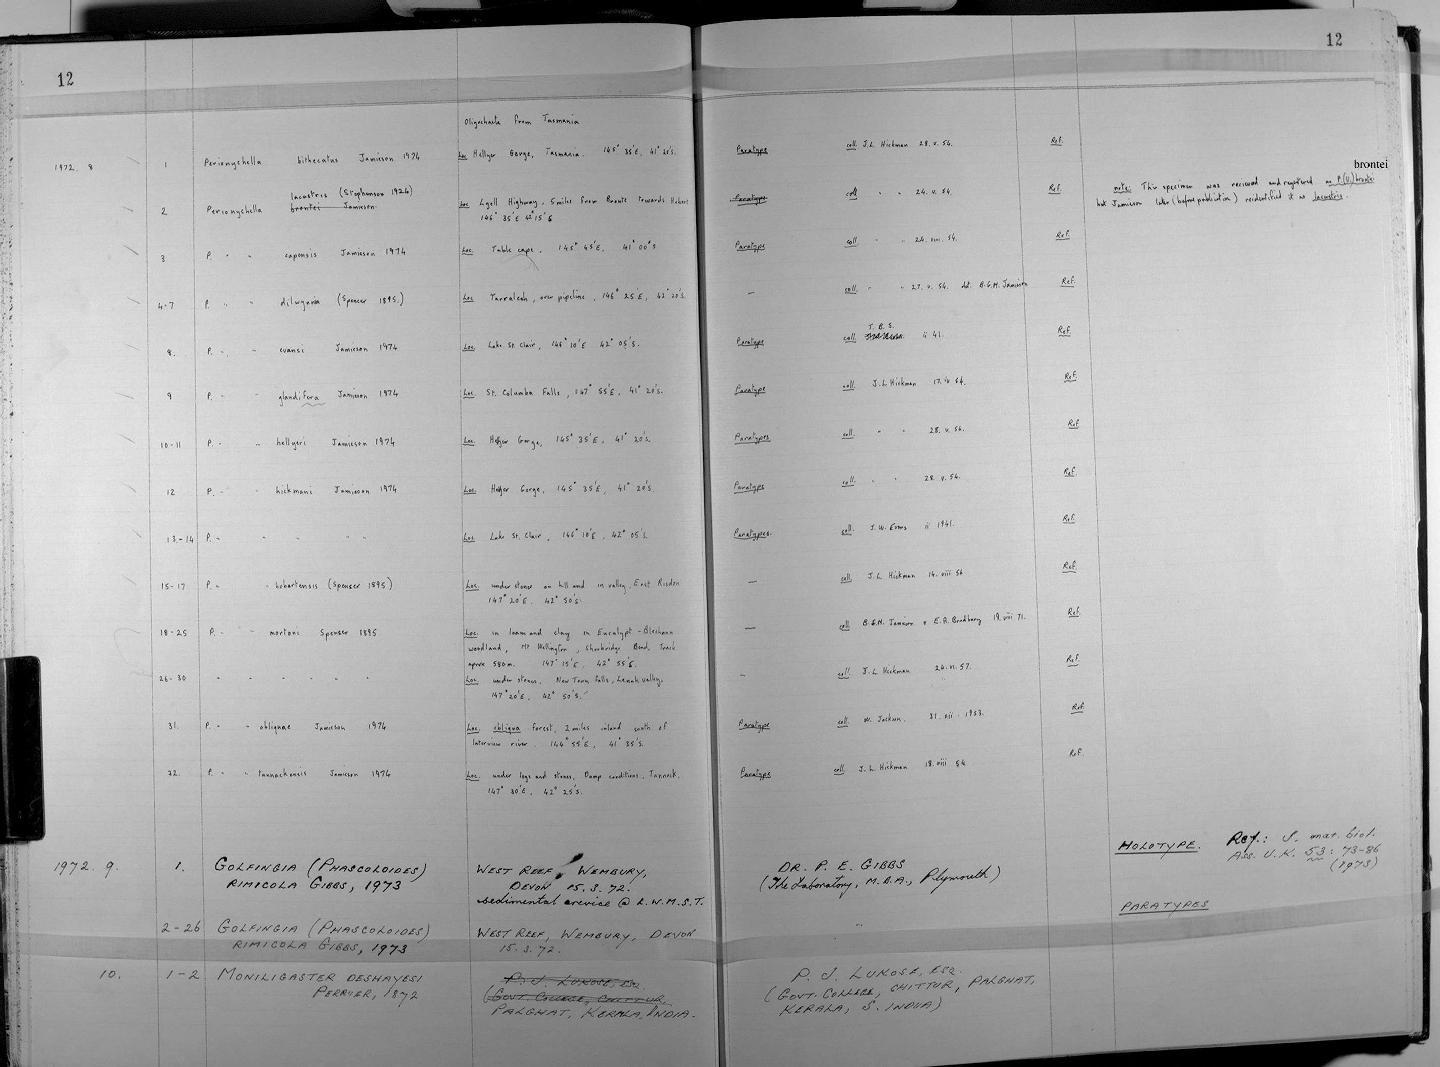 12
12
Oligochaeta from Tasmania
1972. 8 1 Perionychella bithecatus Jamieson 1974 Loc Hellyer Gorge, Tasmania. 145° 35'E, 41° 20's. Paratype coll J.L. Hickman 28. v. 54. Ref.
brontei
lacustris (Stephenson 1924)
2 Perionychella brontei Jamieson Loc Lyell Highway, 5 miles from Bronte towards Hobart Paratype coll " " 24. v. 54. Ref. note: This specimen was received and registered as P.(V.) brontei
146° 35'E 42° 15's but Jamieson later (before publication) reidentified it as lacustris.
3 P. " " capensis Jamieson 1974 Loc. Table cape, 145° 45'E, 41° 00's Paratype coll " " 24. viii. 54. Ref.
4-7 P. " " dilwynnia (Spencer 1895.) Loc Tarraleah, over pipeline, 146° 25'E, 42° 20's. — coll. " " 27. v. 54. det. B.G.M. Jamieson Ref.
J. B. S.
8. P. " " evansi Jamieson 1974 Loc. Lake St. Clair, 146° 10'E 42° 05's. Paratype coll. ii 41. Ref.
9 P. " " glandifera Jamieson 1974 Loc. St. Columba Falls, 147° 55'E, 41° 20's. Paratype coll. J.L. Hickman 17. iv 54. Ref.
10-11 P. " " hellyeri Jamieson 1974 Loc. Hellyer Gorge, 145° 35'E, 41° 20's. Paratypes coll. " " 28. v. 54. Ref
12 P. " " hickmani Jamieson 1974 Loc. Hellyer Gorge, 145° 35'E, 41° 20's. Paratype coll. " " 28. v. 54. Ref.
13-14 P. " " " " " Loc. Lake St. Clair, 146° 10'E, 42° 05's. Paratypes. coll. J.W. Evans ii 1941. Ref.
15-17 P. " " hobartensis (Spencer 1895) Loc. under stones on hill and in valley, East Risdon — coll. J.L. Hickman 14. viii 54 Ref.
147° 20'E. 42° 50's.
18-25 P. " " mortoni Spencer 1895 Loc. in loam and clay in Eucalypt - Blechnum — coll B.G.M. Jamieson & E.A. Bradbury 19. viii 71. Ref.
woodland, Mt Wellington, Shoobridge Bend, Track
aprox 580m. 147° 15'E, 42° 55's.
26-30 " " " " " Loc. under stones. New Town Falls, Lenah valley. — coll J.L Hickman 24. vi. 57. Ref.
147° 20'E, 42° 50's.
31. P. " " obliquae Jamieson 1974 Loc. obliqua forest, 2 miles inland south of Paratype coll. W. Jackson. 31. vii. 1953. Ref.
Interview river. 144° 55'E, 41° 35's.
32. P. " " tunnackensis Jamieson 1974 Loc. under logs and stones, Damp conditions, Tunnack. Paratype coll. J.L. Hickman 18. viii 54 Ref.
147° 30'E, 42° 25's.
1972. 9. 1. GOLFINGIA (PHASCOLOIDES) WEST REEF, WEMBURY, DR. P. E. GIBBS HOLOTYPE. Ref.: J. mar. biol.
RIMICOLA GIBBS, 1973 DEVON 15. 3. 72. (The Laboratory, M.B.A., Plymouth) Ass. U.K. 53: 73-86
sedimental crevice @ L.W.M.S.T. (1973)
PARATYPES
2-26 GOLFINGIA (PHASCOLOIDES) WEST REEF, WEMBURY, DEVON
RIMICOLA GIBBS, 1973 15. 3. 72.
10. 1-2 MONILIGASTER DESHAYESI P. J. LUKOSE, ESQ. P. J. LUKOSE, ESQ.
PERRIER, 1872 (GOVT. COLLEGE, CHITTUR, (GOVT. COLLEGE, CHITTUR, PALGHAT,
PALGHAT, KERALA, INDIA. KERALA, S. INDIA)